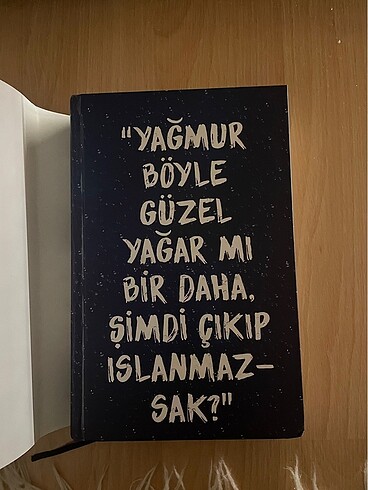 "YAĞMUR
BÖYLE
GÜZEL
YAĞAR MI
BİR DAHA,
ŞİMDİ ÇIKIP
ISLANMAZ-
SAK?"